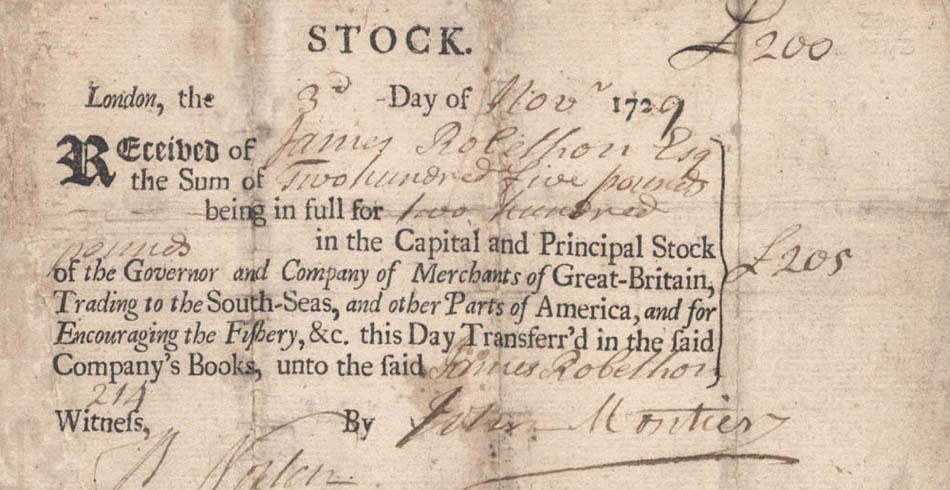 STOCK. £200
London, the 3d Day of Novr 1729
REceived of James Robethon Esqr
the Sum of Two hundred five pounds
being in full for two hundred
pounds in the Capital and Principal Stock
of the Governor and Company of Merchants of Great-Britain, £205
Trading to the South-Seas, and other Parts of America, and for
Encouraging the Fiſhery, &c. this Day Transferr'd in the ſaid
Company's Books, unto the ſaid James Robethon
214
Witneſs, By John Montier